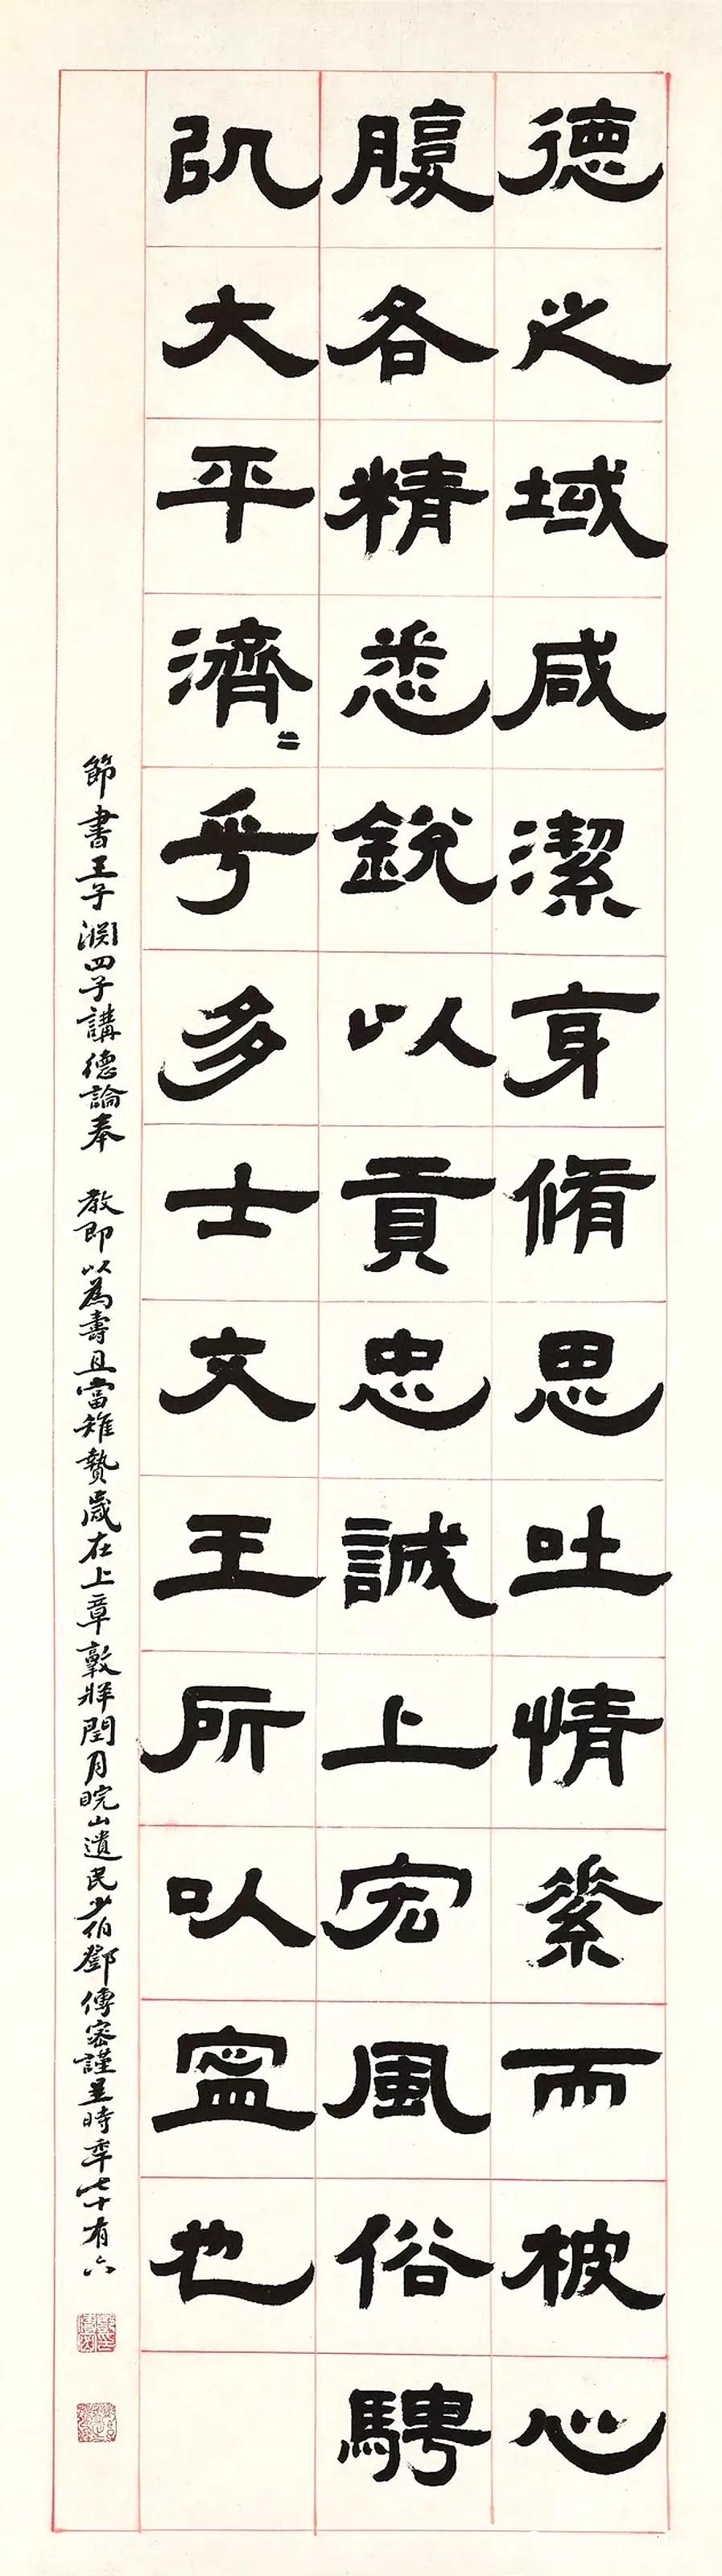 德之域咸潔身脩思吐情素而披心
腹各精悉銳以貢忠誠上宏風俗騁
㕡大平濟〻乎多士文王所以寧也
節書王子淵四子講德論奉　教即以為壽且當雉贄歲在上章敦牂閏月晥山遺民少伯鄧傳密謹呈時年七十有六